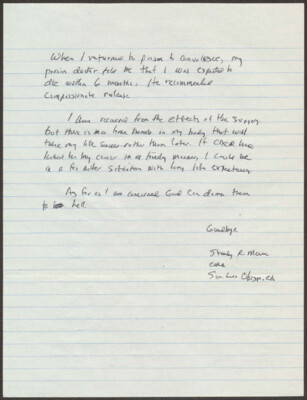 When I returned to prison to convalesce, my
prison doctor told me that I was expected to
die within 6 months. He recommended
compassionate release
I have recovered from the effects of the surgery
but there is a time bomb in my body that will
take my life sooner rather than later. If CDCR had
treated my cancer in a timely manner, I would be
in a far better situation with long life expectancy
As far as I am concerned God can damn them
to hell.
Goodbye
Stanley R
CMC
San Luis Obispo, CA